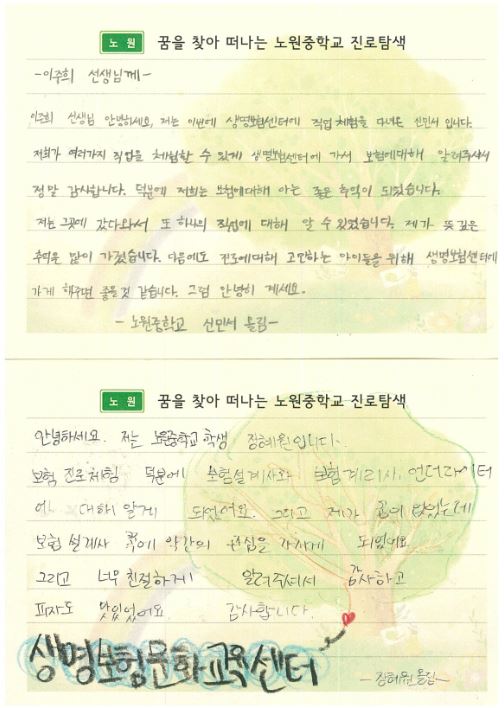 노 원 꿈을 찾아 떠나는 노원중학교 진로탐색
-이주희 선생님께-
이주희 선생님 안녕하세요, 저는 이번에 생명보험센터에 직업 체험을 다녀온 신민서 입니다.
저희가 여러가지 직업을 체험할 수 있게 생명보험센터에 가서 보험에대해 알려주셔서
정말 감사합니다. 덕분에 저희는 보험에대해 아는 좋은 추억이 되었습니다.
저는 그곳에 갔다와서 또 하나의 직업에 대해 알 수 있었습니다. 제가 뜻 깊은
추억은 많이 가졌습니다. 다음에도 진로에대해 고민하는 아이들을 위해 생명보험센터에
가게 해주면 좋을것 같습니다. 그럼 안녕히 계세요.
- 노원중학교 신민서 올림-
노 원 꿈을 찾아 떠나는 노원중학교 진로탐색
안녕하세요. 저는 노원중학교 학생 장혜원입니다.
보험 진로체험 덕분에 보험설계사와 보험계리사, 언더라이터
에 대해 알게 되었어요. 그리고 제가 꿈이 없었는데
보험 설계사 쪽에 약간의 관심을 가지게 되었어요.
그리고 너무 친절하게 알려주셔서 감사하고
피자도 맛있었어요. 감사합니다.
생명보험문화교육센터
- 장혜원 올림-